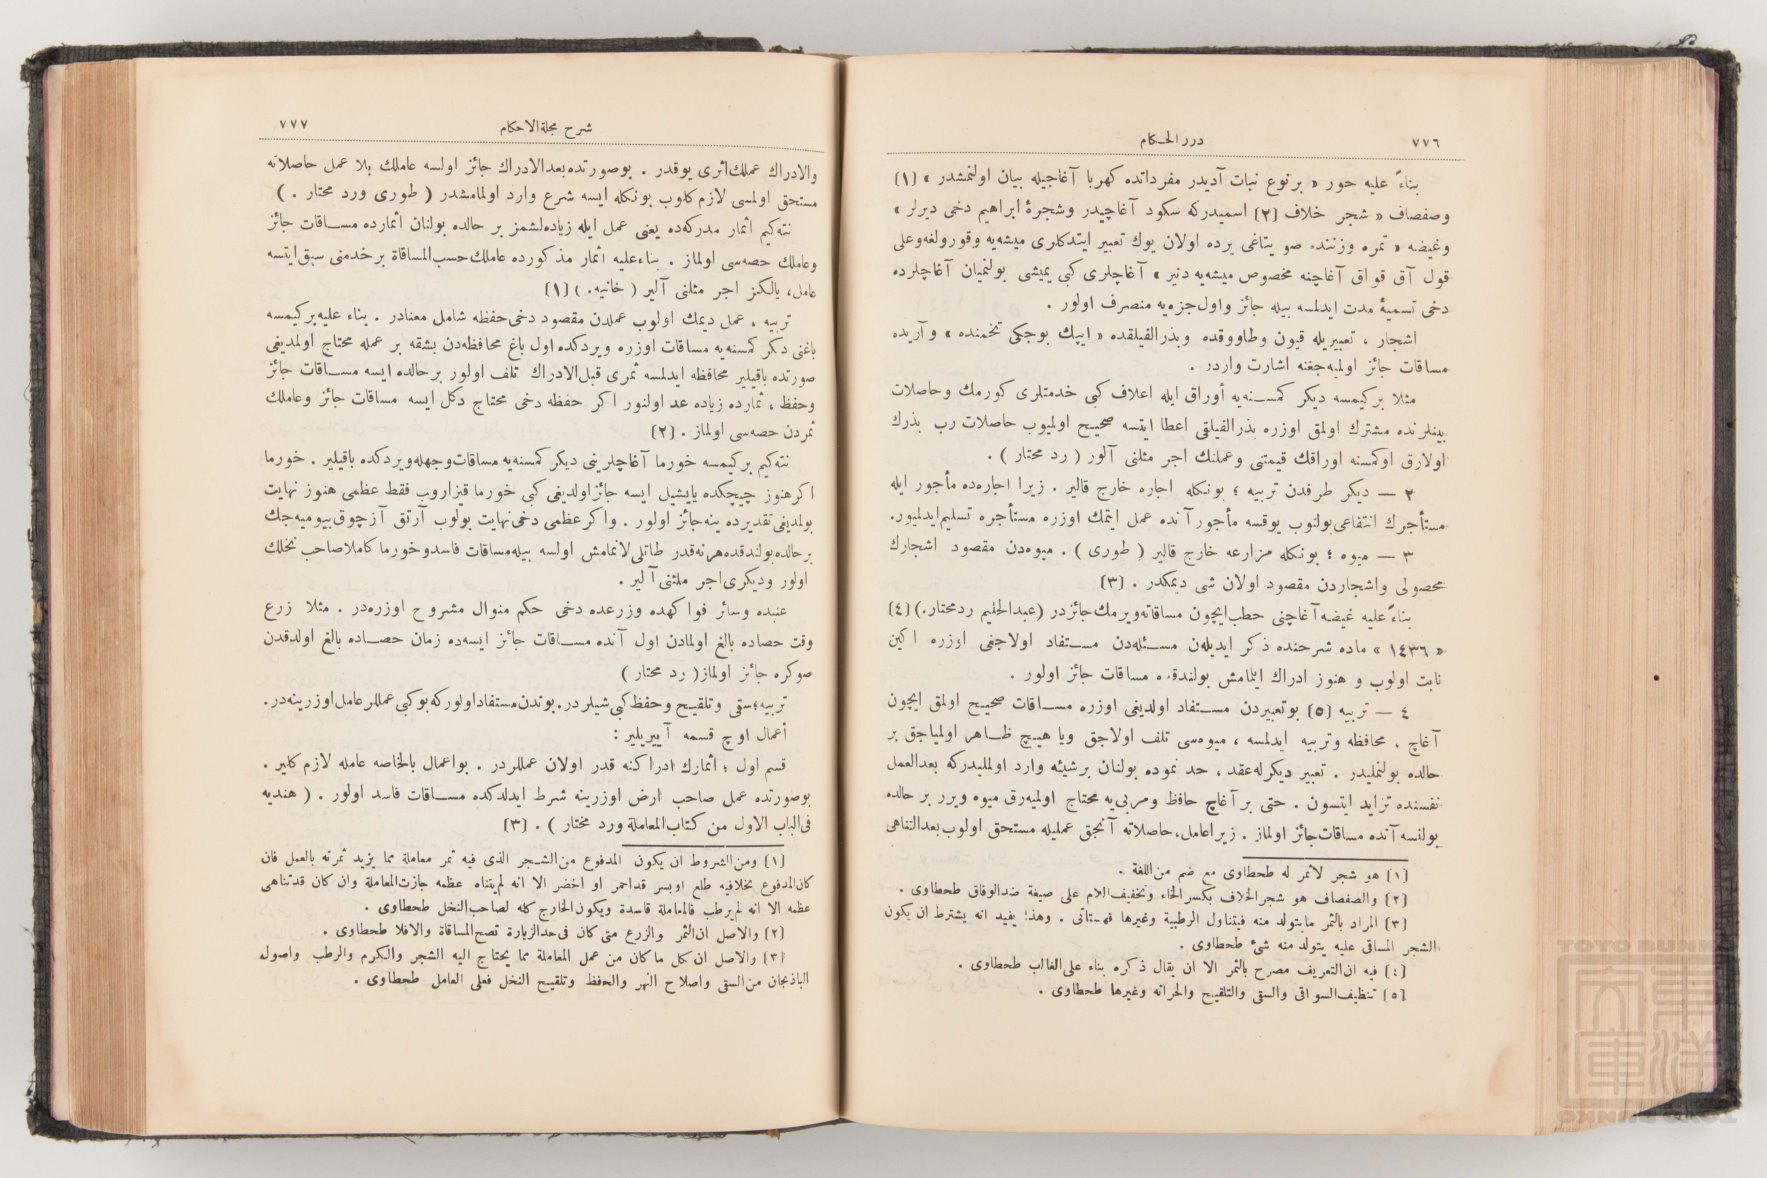 ٧٧٦
درر الحكام
بناءً عليه حور « بر نوع نبات آديدر مفرداتده كهربا آغاجيله بيان اولنمشدر » (١)
وصفصاف « شجر خلاف (٢) اسميدركه سكود آغاجيدر وشجرۀ ابراهيم دخى ديرلر »
وغيضه « ثمره وزننده صو يتاغى يرده اولان يوك تعبير ايتدكلرى ميشه‌يه وقورولغه وعلى
قول آق قواق آغاچنه مخصوص ميشه‌يه دنير » آغاچلرى كبى يميشى بولنميان آغاچلرده
دخى تسميۀ مدت ايدلمسه بيله جائز واول جزه‌يه منصرف اولور .
اشجار ، تعبيريله قيون وطاووقده وبذر الفيلقده « ايپك بوجكى تخمنده » و آريده
مساقات جائز اولميه‌جغنه اشارت واردر .
مثلا بركيمسه ديكر كمسنه‌يه أوراق ايله اعلاف كبى خدمتلرى كورمك وحاصلات
بينلرنده مشترك اولمق اوزره بذرالفيلقى اعطا ايتسه صحيح اولميوب حاصلات رب بذرك
اولارق اوكمسنه اوراقك قيمتنى وعملنك اجر مثلنى آلور ( رد محتار ) .
٢ — ديكر طرفدن تربيه ؛ بونكله اجاره خارج قالير . زيرا اجاره‌ده مأجور ايله
مستأجرك انتفاعى بولنوب يوقسه مأجور آنده عمل ايتمك اوزره مستأجره تسليم ايدلميور.
٣ — ميوه ؛ بونكله مزارعه خارج قالير ( طورى ) . ميوه‌دن مقصود اشجارك
محصولى واشجاردن مقصود اولان شى ديمكدر . (٣)
بناءً عليه غيضه آغاچنى حطب ايچون مساقاته ويرمك جائزدر (عبدالحليم ردمحتار.) (٤)
« ١٤٣٦ » ماده شرحنده ذكر ايديلن مسئله‌دن مستفاد اولاجغى اوزره اكين
نابت اولوب و هنوز ادراك ايتمامش بولندقده مساقات جائز اولور .
٤ — تربيه (٥) بوتعبيردن مستفاد اولديغى اوزره مساقات صحيح اولمق ايچون
آغاچ ، محافظه وتربيه ايدلمسه ، ميوه‌سى تلف اولاجق ويا هيچ ظاهر اولمياجق بر
حالده بولنمليدر . تعبير ديكرله عقد ، حد نموده بولنان برشيئه وارد اولمليدركه بعدالعمل
نفسنده تزايد ايتسون . حتى بر آغاچ حافظ ومربى‌يه محتاج اولميه‌رق ميوه ويرر بر حالده
بولنسه آنده مساقات جائز اولماز . زيرا عامل، حاصلاته آنجق عمليله مستحق اولوب بعدالتناهى
(١) هو شجر لاثمر له طحطاوى مع ضم من اللغة .
(٢) والصفصاف هو شجر الخلاف بكسر الخاء وتخفيف اللام على صيغة ضد الوفاق طحطاوى .
(٣) المراد بالثمر مايتولد منه فيتناول الرطبة وغيرها قهستانى . وهذا يفيد انه يشترط ان يكون
الشجر المساقى عليه يتولد منه شئ طحطاوى .
(٤) فيه ان التعريف مصرح بالثمر الا ان يقال ذكره بناء على الغالب طحطاوى .
(٥) تنظيف السواقى والسقى والتلقيح والحراثه وغيرها طحطاوى .
شرح مجلة الاحكام
٧٧٧
والادراك عملك اثرى يوقدر . بوصورتده بعدالادراك جائز اولسه عاملك بلا عمل حاصلاته
مستحق اولمسى لازم كلوب بونكله ايسه شرع وارد اولمامشدر ( طورى ورد محتار . )
نته‌كيم اثمار مدركه‌ده يعنى عمل ايله زياده‌لشمز بر حالده بولنان اثمارده مساقات جائز
وعاملك حصه‌سى اولماز . بناءعليه اثمار مذكورده عاملك حسب المساقاة بر خدمتى سبق ايتسه
عامل، يالكز اجر مثلنى آلير ( خانيه. ) (١)
تربيه ، عمل ديمك اولوب عملدن مقصود دخى حفظه شامل معنادر . بناء عليه بركيمسه
باغنى دكر كمسنه‌يه مساقات اوزره ويردكده اول باغ محافظه‌دن بشقه بر عمله محتاج اولمديغى
صورتده باقيلير محافظه ايدلمسه ثمرى قبل الادراك تلف اولور بر حالده ايسه مساقات جائز
وحفظ ، ثمارده زياده عد اولنور اكر حفظه دخى محتاج دكل ايسه مساقات جائز وعاملك
ثمردن حصه‌سى اولماز . (٢)
نته‌كيم بركيمسه خورما آغاچلرينى ديكر كمسنه‌يه مساقات وجهله ويردكده باقيلير . خورما
اكر هنوز چيچكده يا يشيل ايسه جائز اولديغى كبى خورما قيزاروب فقط عظمى هنوز نهايت
بولمديغى تقديرده ينه جائز اولور . واكر عظمى دخى نهايت بولوب آرتق آز چوق بيوميه‌جك
برحالده بولندقده هر نه قدر طاتلى لانمامش اولسه بيله مساقات فاسد وخورما كاملا صاحب نخلك
اولور وديكرى اجر مثلنى آلير .
عنبده وسائر فواكهده وزرعده دخى حكم منوال مشروح اوزره‌در . مثلا زرع
وقت حصاده بالغ اولمادن اول آنده مساقات جائز ايسه‌ده زمان حصاده بالغ اولدقدن
صوكره جائز اولماز( رد محتار )
تربيه؛ سقى وتلقيح وحفظ كبى شيلردر. بوندن مستفاد اولور كه بوكبى عمللر عامل اوزرينه‌در.
أعمال اوچ قسمه آييريلير :
قسم اول ؛ اثمارك ادراكنه قدر اولان عمللردر . بواعمال بالخاصه عامله لازم كلير .
بوصورتده عمل صاحب ارض اوزرينه شرط ايدلدكده مساقات فاسد اولور . ( هنديه
فى الباب الاول من كتاب المعاملة ورد محتار ) . (٣)
(١) ومن الشروط ان يكون المدفوع من الشجر الذى فيه ثمر معاملة مما يزيد ثمرته بالعمل فان
كان المدفوع نخلافيه طلع اوبسر قداحمر او اخضر الا انه لم يتناه عظمه جازت المعاملة وان كان قدتناهى
عظمه الا انه لم يرطب فالمعاملة فاسدة ويكون الخارج كله لصاحب النخل طحطاوى .
(٢) والاصل ان الثمر والزرع متى كان فى حد الزيارة تصح المساقاة والافلا طحطاوى .
(٣) والاصل ان كل ماكان من عمل المعاملة مما يحتاج اليه الشجر والكرم والرطب واصول
الباذنجان من السقى واصلاح النهر والحفظ وتلقيح النخل فعلى العامل طحطاوى .
TOYO BUNKO